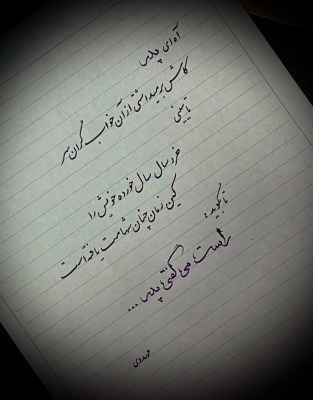 آه ای پدر
کاش برمیداشتی از آن خواب گران سر
تا ببینی
خردسال سال خورده خویش را
کین زمان چنان شهامت یافته است
تا بگوید:
راست می گفتی پدر ...